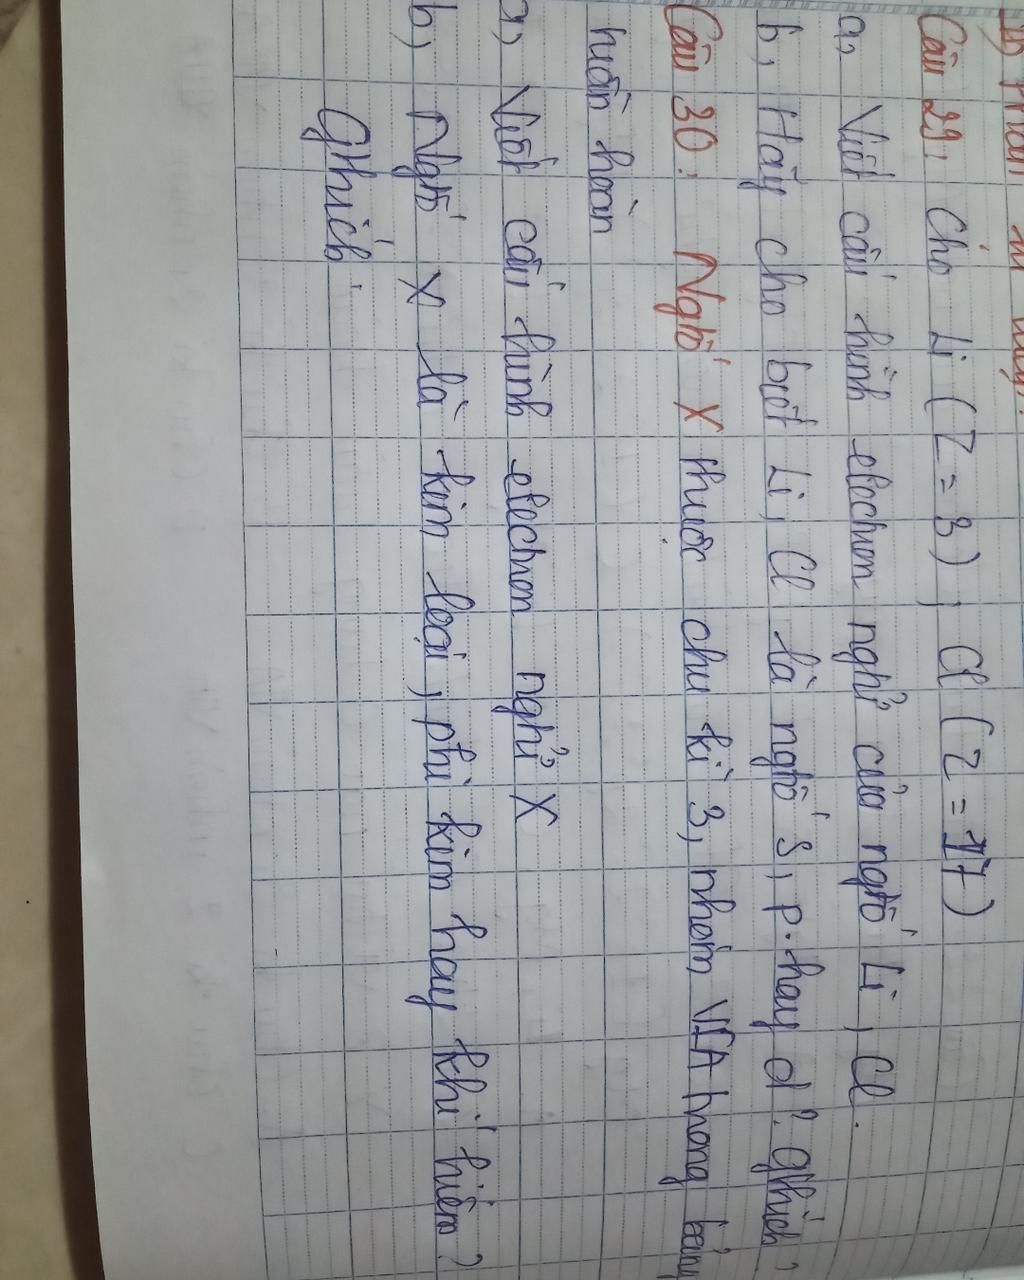 Câu 29: Cho Li (Z = 3), Cl (Z = 17)
a, Viết cấu hình electron nghtử của ngtố Li, Cl.
b, Hãy cho biết Li, Cl là ngtố s, p hay d? Gthích?
Câu 30: Ngtố X thuộc chu kì 3, nhóm VIA trong bảng
tuần hoàn
a, Viết cấu hình electron nghtử X
b, Ngtố X là kim loại, phi kim hay khí hiếm?
Gthích.